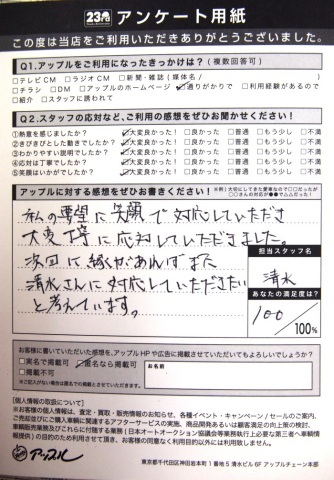 23rd アンケート用紙
この度は当店をご利用いただきありがとうございました。
Q1.アップルをご利用になったきっかけは?(複数回答可)
□テレビCM □ラジオCM □新聞・雑誌(媒体名/ )
□チラシ □DM □アップルのホームページ ☑通りがかりで □利用経験があるので
□紹介 □スタッフに誘われて
Q2.スタッフの応対など、ご利用の感想をぜひお聞かせください!
①熱意を感じましたか? ☑大変良かった! □良かった □普通 □もう少し □不満
②きびきびとした動きでしたか? ☑大変良かった! □良かった □普通 □もう少し □不満
③わかりやすい説明でしたか? ☑大変良かった! □良かった □普通 □もう少し □不満
④応対は丁寧でしたか? ☑大変良かった! □良かった □普通 □もう少し □不満
⑤笑顔はいかがでしたか? ☑大変良かった! □良かった □普通 □もう少し □不満
アップルに対する感想をぜひお書きください!
私の要望に笑顔で対応していただき
大変丁寧に応対していただきました。
次回に縁があればまた
清水さんに対応していただきたい
と考えています。
担当スタッフ名
清水
あなたの満足度は?
100/100%
お客様に書いていただいた感想を、アップルHPや広告に掲載させていただいてもよろしいでしょうか?
□実名で掲載可 ☑匿名なら掲載可
□掲載不可
※ご記入がない場合は匿名での掲載とさせていただきます。
お名前
[個人情報の取扱について]
※お客様の個人情報は、査定・買取・販売情報のお知らせ、各種イベント・キャンペーン/セールのご案内、
ご売却並びにご購入車輌に関連するアフターサービスの実施、商品開発あるいは顧客満足の向上策の検討、
車輌販売業務及びこれらに付随する業務(日本オートオークション協議会等業務執行上必要な第三者へ車輌情
報提供)の目的のため利用させて頂き、お客様の同意なく利用目的以外には利用致しません。
アップル
東京都千代田区神田岩本町1番地5 清水ビル6F アップルチェーン本部